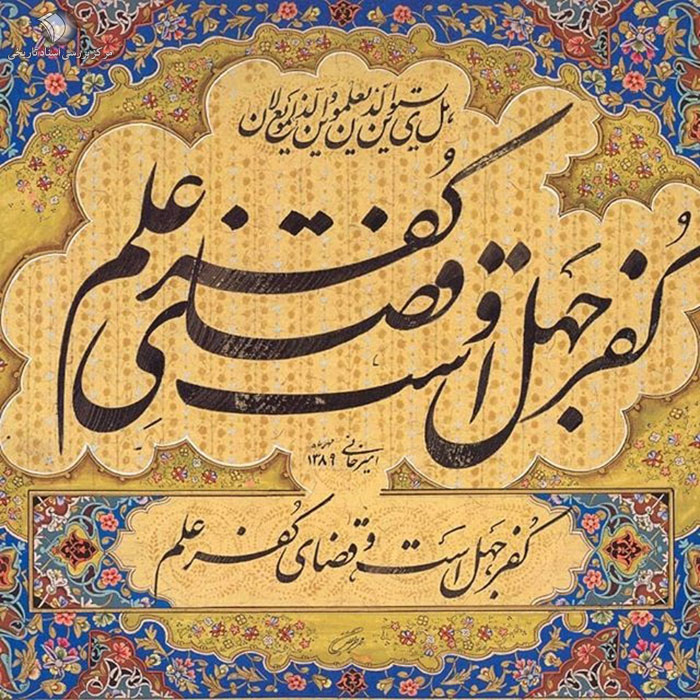 مرکز بررسی اسناد تاریخی
هل یستوی الذین یعلمون والذین لایعلمون
کُفر جهل است و قضای کُفر علم
امیرخانی
۱۳۸۹
کُفر جهل است و قضای کُفر علم